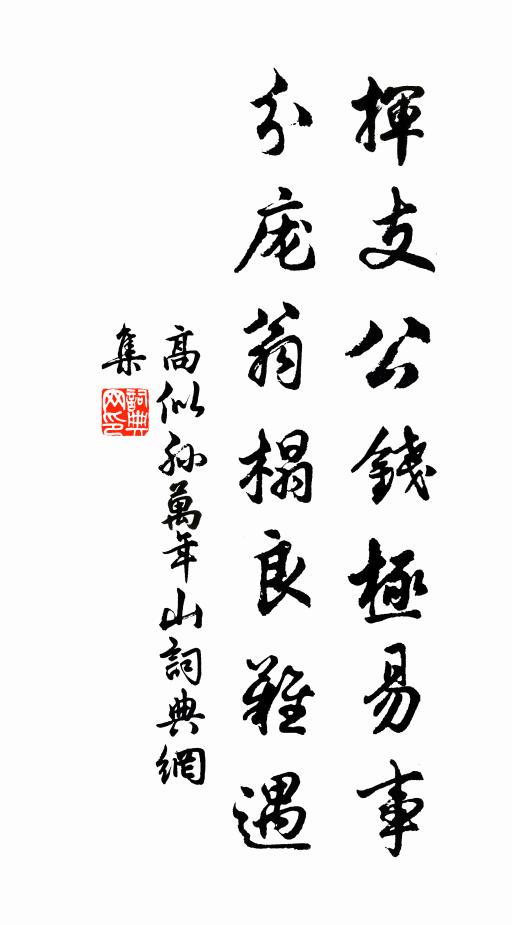 揮支公錢極易事
分庞翁榻良難遇
高似孫萬年山詞典網
集
詞典网印